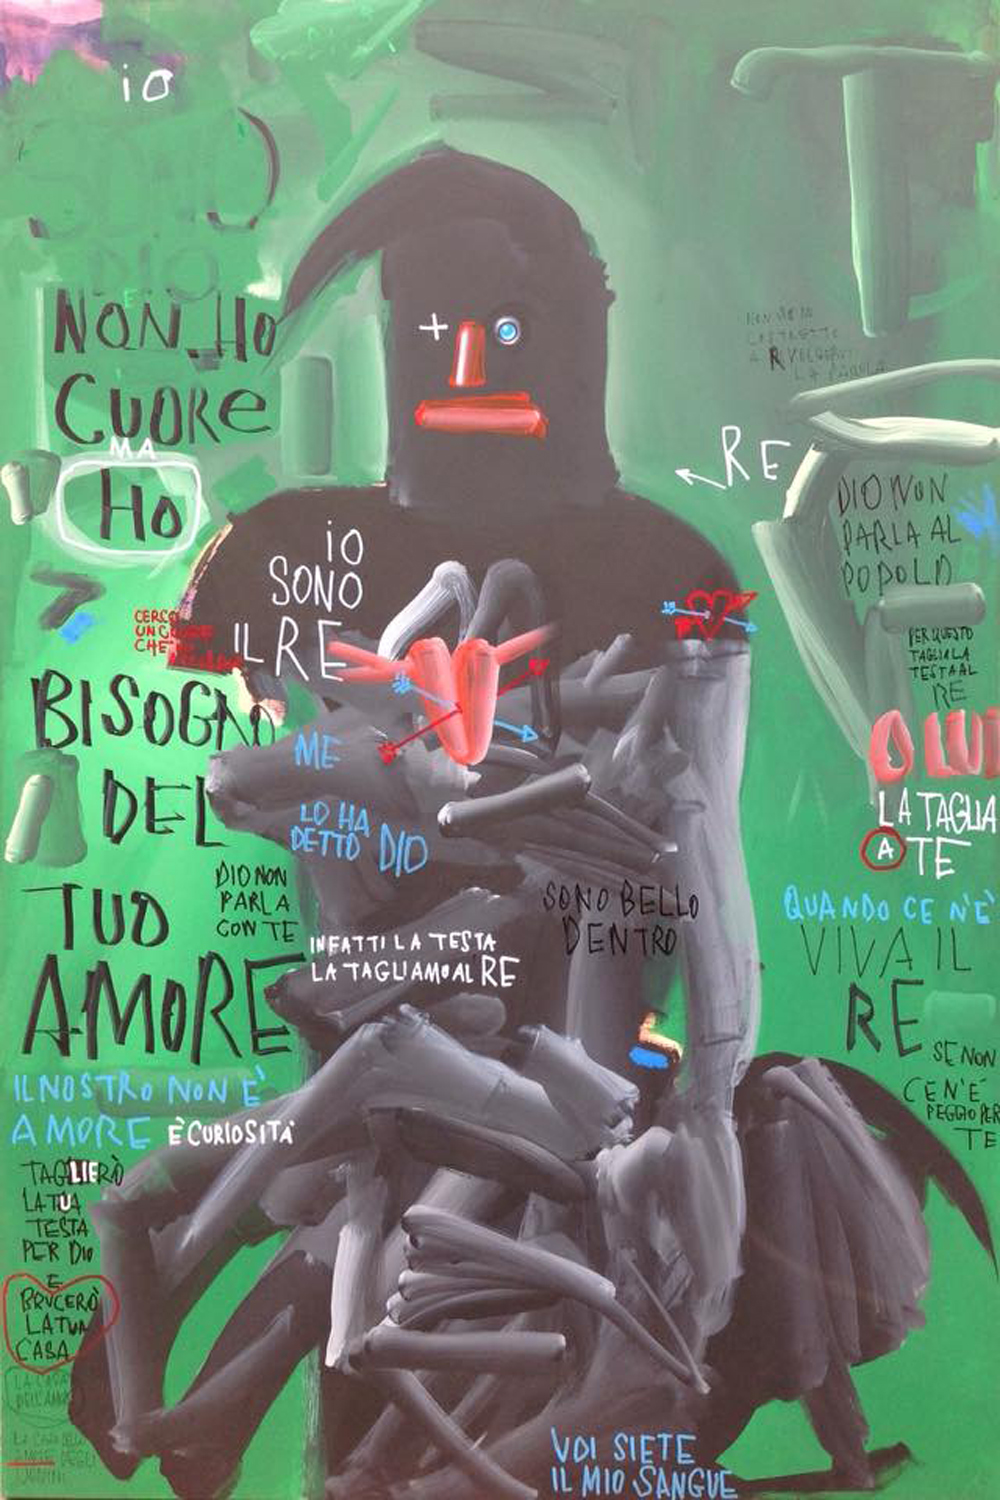 io
SONO
DIO
NON HO
CUORe
MA
HO
BISOGNO
DEL
TUO
AMORE
IL NOSTRO NON È
AMORE È CURIOSITÀ
TAGLIERÒ
LA TUA
TESTA
PER DIO
E
BRUCERÒ
LA TUA
CASA
CERCO
UN CUORE
CHE
iO
SONO
IL RE
ME
LO HA
DETTO DIO
DIO NON
PARLA
CON TE
INFATTI LA TESTA
LA TAGLIAMO AL RE
SONO BELLO
DENTRO
VOI SIETE
IL MIO SANGUE
NON SONO
COSTRETTO
A RIVOLGERVI
LA PAROLA
RE
DIO NON
PARLA AL
POPOLO
PER QUESTO
TAGLIA LA
TESTA AL
RE
O LUI
LA TAGLIA
A TE
QUANDO CE N'È
VIVA IL
RE
SE NON
CE N'È
PEGGIO PER
TE